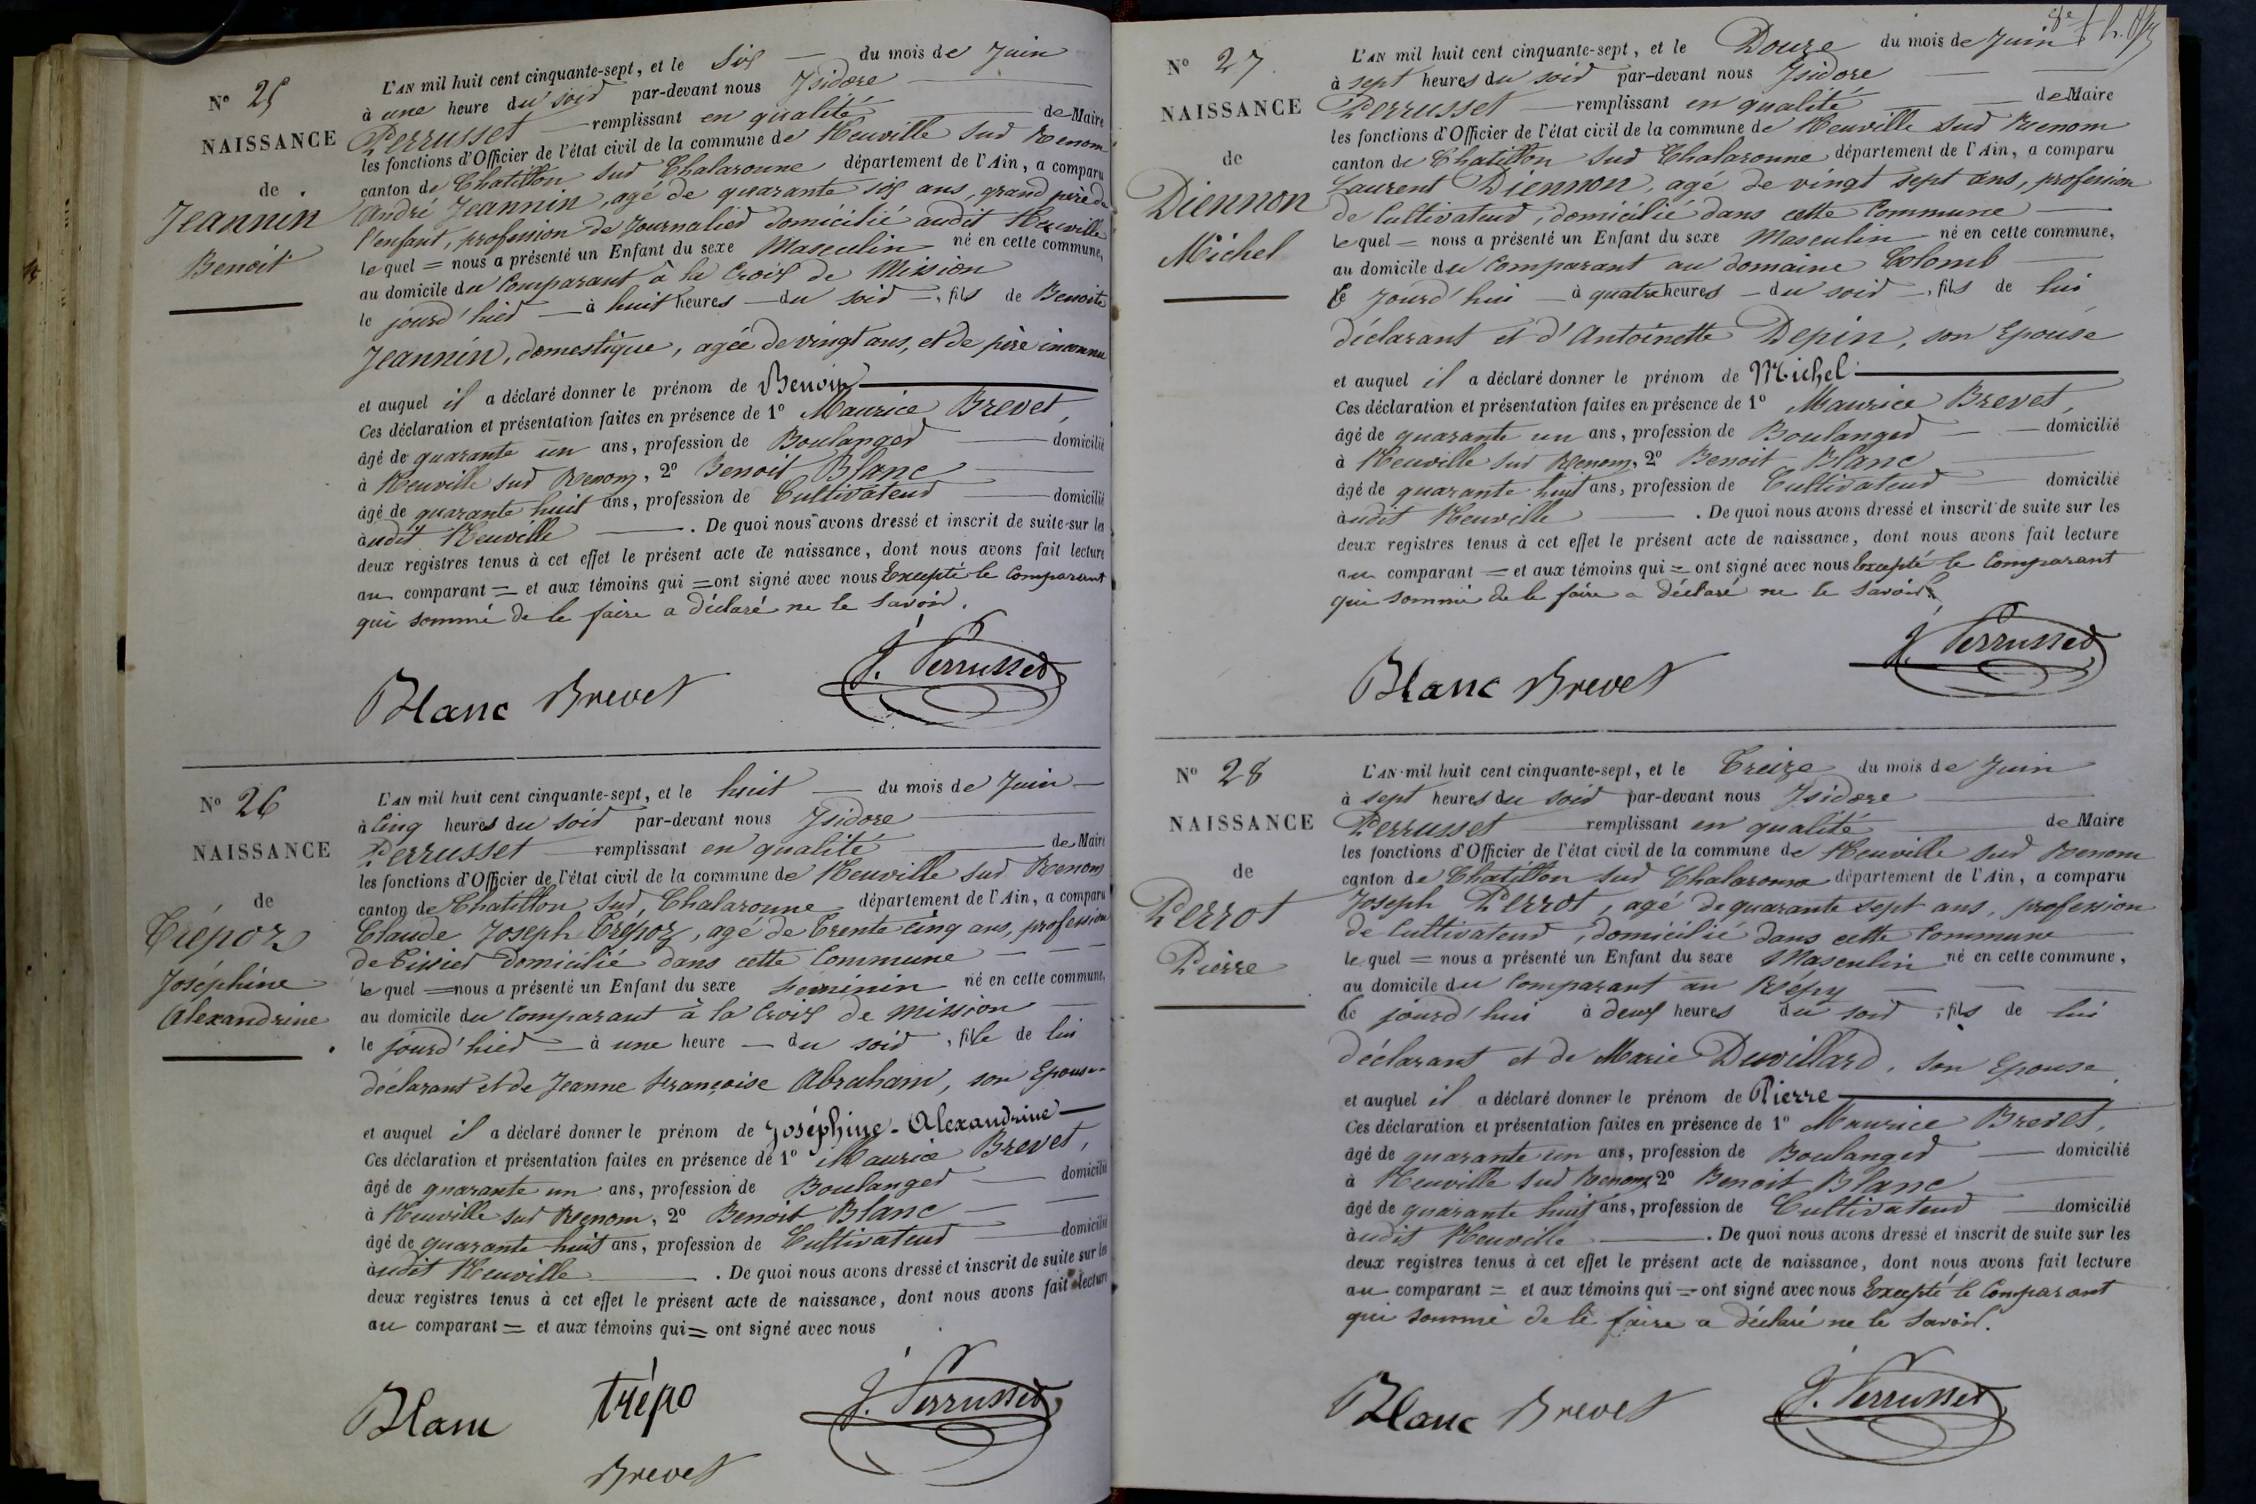 N° 25
NAISSANCE
de
Jeannin
Benoit
L'AN mil huit cent cinquante-sept, et le Six — du mois de Juin
à une heure du soir par-devant nous Isidore —
Perrusset — remplissant en qualité — de Maire
les fonctions d'Officier de l'état civil de la commune de Neuville sur Renom
canton de Chatillon sur Chalaronne département de l'Ain, a comparu
André Jeannin, agé de quarante six ans, grand père de
l'enfant, profession de Journalier domicilié audit Neuville
lequel = nous a présenté un Enfant du sexe Masculin né en cette commune,
au domicile du Comparant à la Croix de Mission
le jourd'hier — à huit heures — du soir —, fils de Benoite
Jeannin, domestique, agée de vingt ans, et de père inconnu
et auquel il a déclaré donner le prénom de Benoit —
Ces déclaration et présentation faites en présence de 1° Maurice Brevet,
âgé de quarante un ans, profession de Boulanger — domicilié
à Neuville sur Renom, 2° Benoit Blanc —
âgé de quarante huit ans, profession de Cultivateur — domicilié
audit Neuville — . De quoi nous avons dressé et inscrit de suite sur les
deux registres tenus à cet effet le présent acte de naissance, dont nous avons fait lecture
au comparant = et aux témoins qui = ont signé avec nous Excepté le Comparant
qui sommé de le faire a déclaré ne le savoir.
Blanc Brevet J. Perrusset
N° 26
NAISSANCE
de
Trépoz
Joséphine
Alexandrine
L'AN mil huit cent cinquante-sept, et le huit — du mois de Juin —
à Cinq heures du soir par-devant nous Isidore —
Perrusset — remplissant en qualité — de Maire
les fonctions d'Officier de l'état civil de la commune de Neuville sur Renom
canton de Chatillon sur Chalaronne département de l'Ain, a comparu
Claude Joseph Trépoz, agé de Trente cinq ans, profession
de Tissier domicilié dans cette Commune — —
lequel = nous a présenté un Enfant du sexe Feminin né en cette commune,
au domicile du Comparant à la Croix de Mission —
le jourd'hier — à une heure — du soir, fille de lui
déclarant et de Jeanne Françoise Abraham, son Epouse
et auquel il a déclaré donner le prénom de Joséphine-Alexandrine —
Ces déclaration et présentation faites en présence de 1° Maurice Brevet,
âgé de quarante un ans, profession de Boulanger — domicilié
à Neuville sur Renom, 2° Benoit Blanc — —
âgé de quarante huit ans, profession de Cultivateur — domicilié
audit Neuville — . De quoi nous avons dressé et inscrit de suite sur les
deux registres tenus à cet effet le présent acte de naissance, dont nous avons fait lecture
au comparant = et aux témoins qui = ont signé avec nous
Blanc trépo J. Perrusset
Brevet
N° 27
NAISSANCE
de
Diennon
Michel
L'AN mil huit cent cinquante-sept, et le Douze du mois de Juin
à sept heures du soir par-devant nous Isidore — —
Perrusset — remplissant en qualité — — de Maire
les fonctions d'Officier de l'état civil de la commune de Neuville sur Renom
canton de Chatillon sur Chalaronne département de l'Ain, a comparu
Laurent Diennon, agé de vingt sept ans, profession
de Cultivateur, domicilié dans cette Commune —
lequel = nous a présenté un Enfant du sexe Masculin — né en cette commune,
au domicile du Comparant au domaine Colomb —
Ce Jourd'hui — à quatre heures — du soir —, fils de lui
déclarant et d'Antoinette Depin, son Epouse
et auquel il a déclaré donner le prénom de Michel —
Ces déclaration et présentation faites en présence de 1° Maurice Brevet,
âgé de quarante un ans, profession de Boulanger — — domicilié
à Neuville sur Renom, 2° Benoit Blanc —
âgé de quarante huit ans, profession de Cultivateur — domicilié
audit Neuville — . De quoi nous avons dressé et inscrit de suite sur les
deux registres tenus à cet effet le présent acte de naissance, dont nous avons fait lecture
au comparant = et aux témoins qui = ont signé avec nous Excepté le Comparant
qui sommé de le faire a déclaré ne le savoir.
Blanc Brevet J. Perrusset
N° 28
NAISSANCE
de
Perrot
Pierre
L'AN mil huit cent cinquante-sept, et le Treize du mois de Juin
à sept heures du soir par-devant nous Isidore —
Perrusset — remplissant en qualité — de Maire
les fonctions d'Officier de l'état civil de la commune de Neuville sur Renom
canton de Chatillon sur Chalaronne département de l'Ain, a comparu
Joseph Perrot, agé de quarante sept ans, profession
de Cultivateur, domicilié dans cette Commune —
lequel = nous a présenté un Enfant du sexe Masculin né en cette commune,
au domicile du Comparant au Répy — — —
Ce jourd'hui à deux heures du soir ; fils de lui
déclarant et de Marie Duvillard, son Epouse
et auquel il a déclaré donner le prénom de Pierre —
Ces déclaration et présentation faites en présence de 1° Maurice Brevet,
âgé de quarante un ans, profession de Boulanger — domicilié
à Neuville sur Renom, 2° Benoit Blanc —
âgé de quarante huit ans, profession de Cultivateur — domicilié
audit Neuville — . De quoi nous avons dressé et inscrit de suite sur les
deux registres tenus à cet effet le présent acte de naissance, dont nous avons fait lecture
au comparant = et aux témoins qui = ont signé avec nous Excepté le Comparant
qui sommé de le faire a déclaré ne le savoir.
Blanc Brevet J. Perrusset